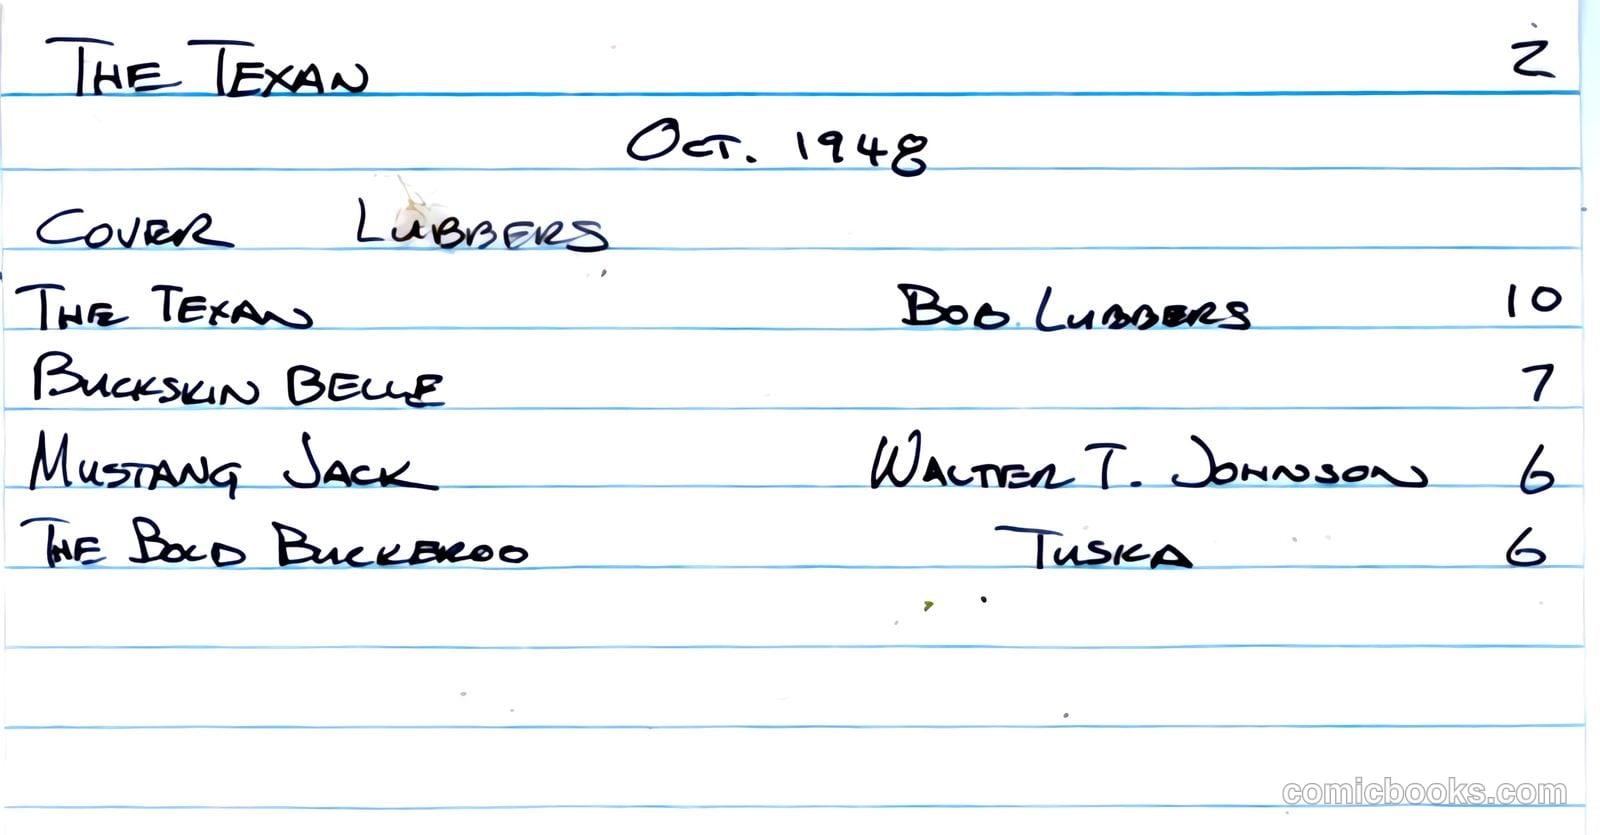 THE TEXAN 2
OCT. 1948
COVER LUBBERS
THE TEXAN BOB LUBBERS 10
BUCKSKIN BELLE 7
MUSTANG JACK WALTER T. JOHNSON 6
THE BOLD BUCKEROO TUSKA 6
comicbooks.com